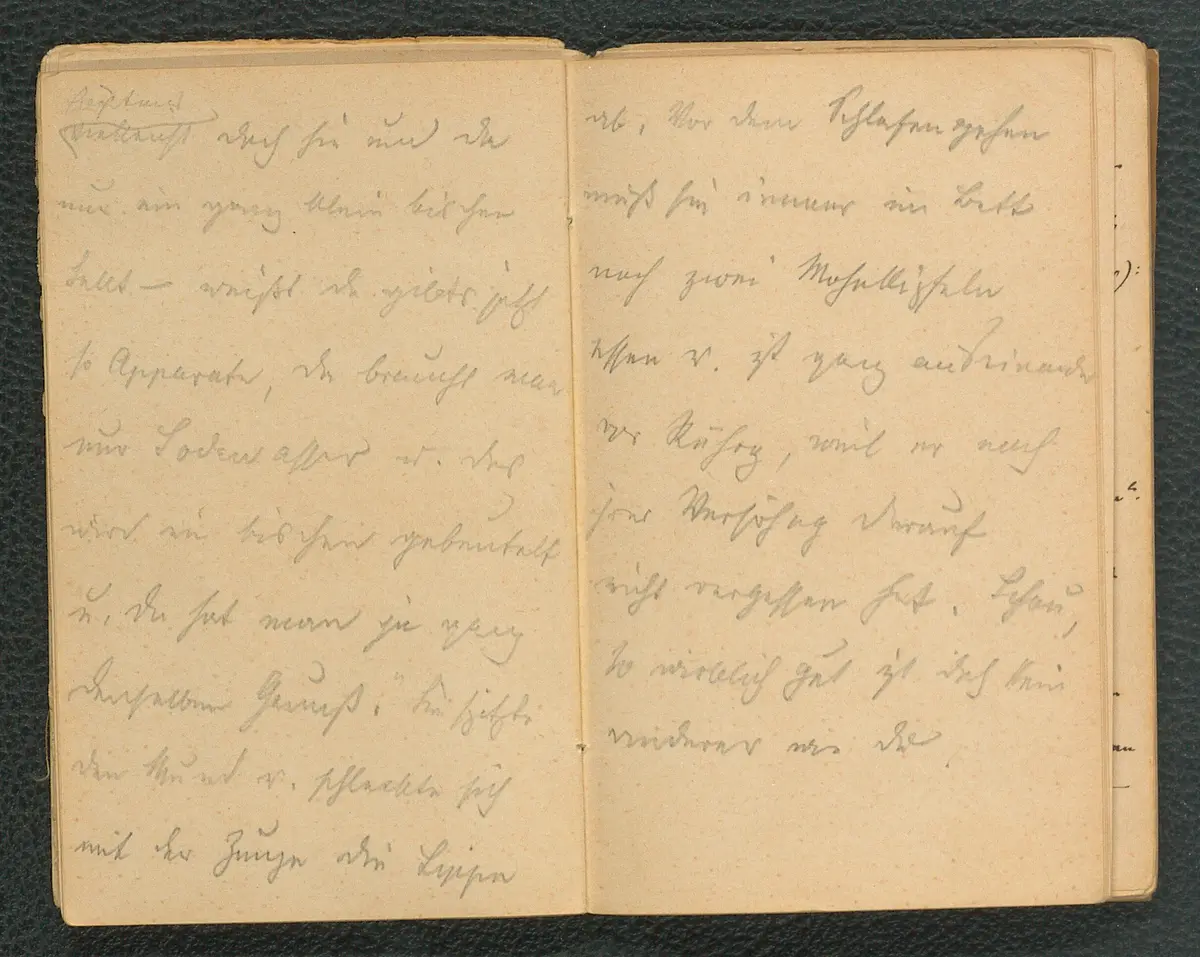 vielleicht doch hie und da
nur ein ganz klein bischen
Sekt – weißt da gibts jetzt
so Apparate, da braucht man
nur Sodawasser u. das
wird ein bischen gebeutelt
u. da hat man ja ganz
denselben Genuß." Sie spitzte
den Mund u. schleckte sich
mit der Zunge die Lippen
ab. Vor dem Schlafengehen
muß sie immer im Bett
noch zwei Mohnkipfeln
essen u. ist ganz auseinander
vor Rührg, weil er nach
ihrer Versöhng darauf
nicht vergessen hat. Schau,
so wirklich gut ist doch kein
anderer wie du